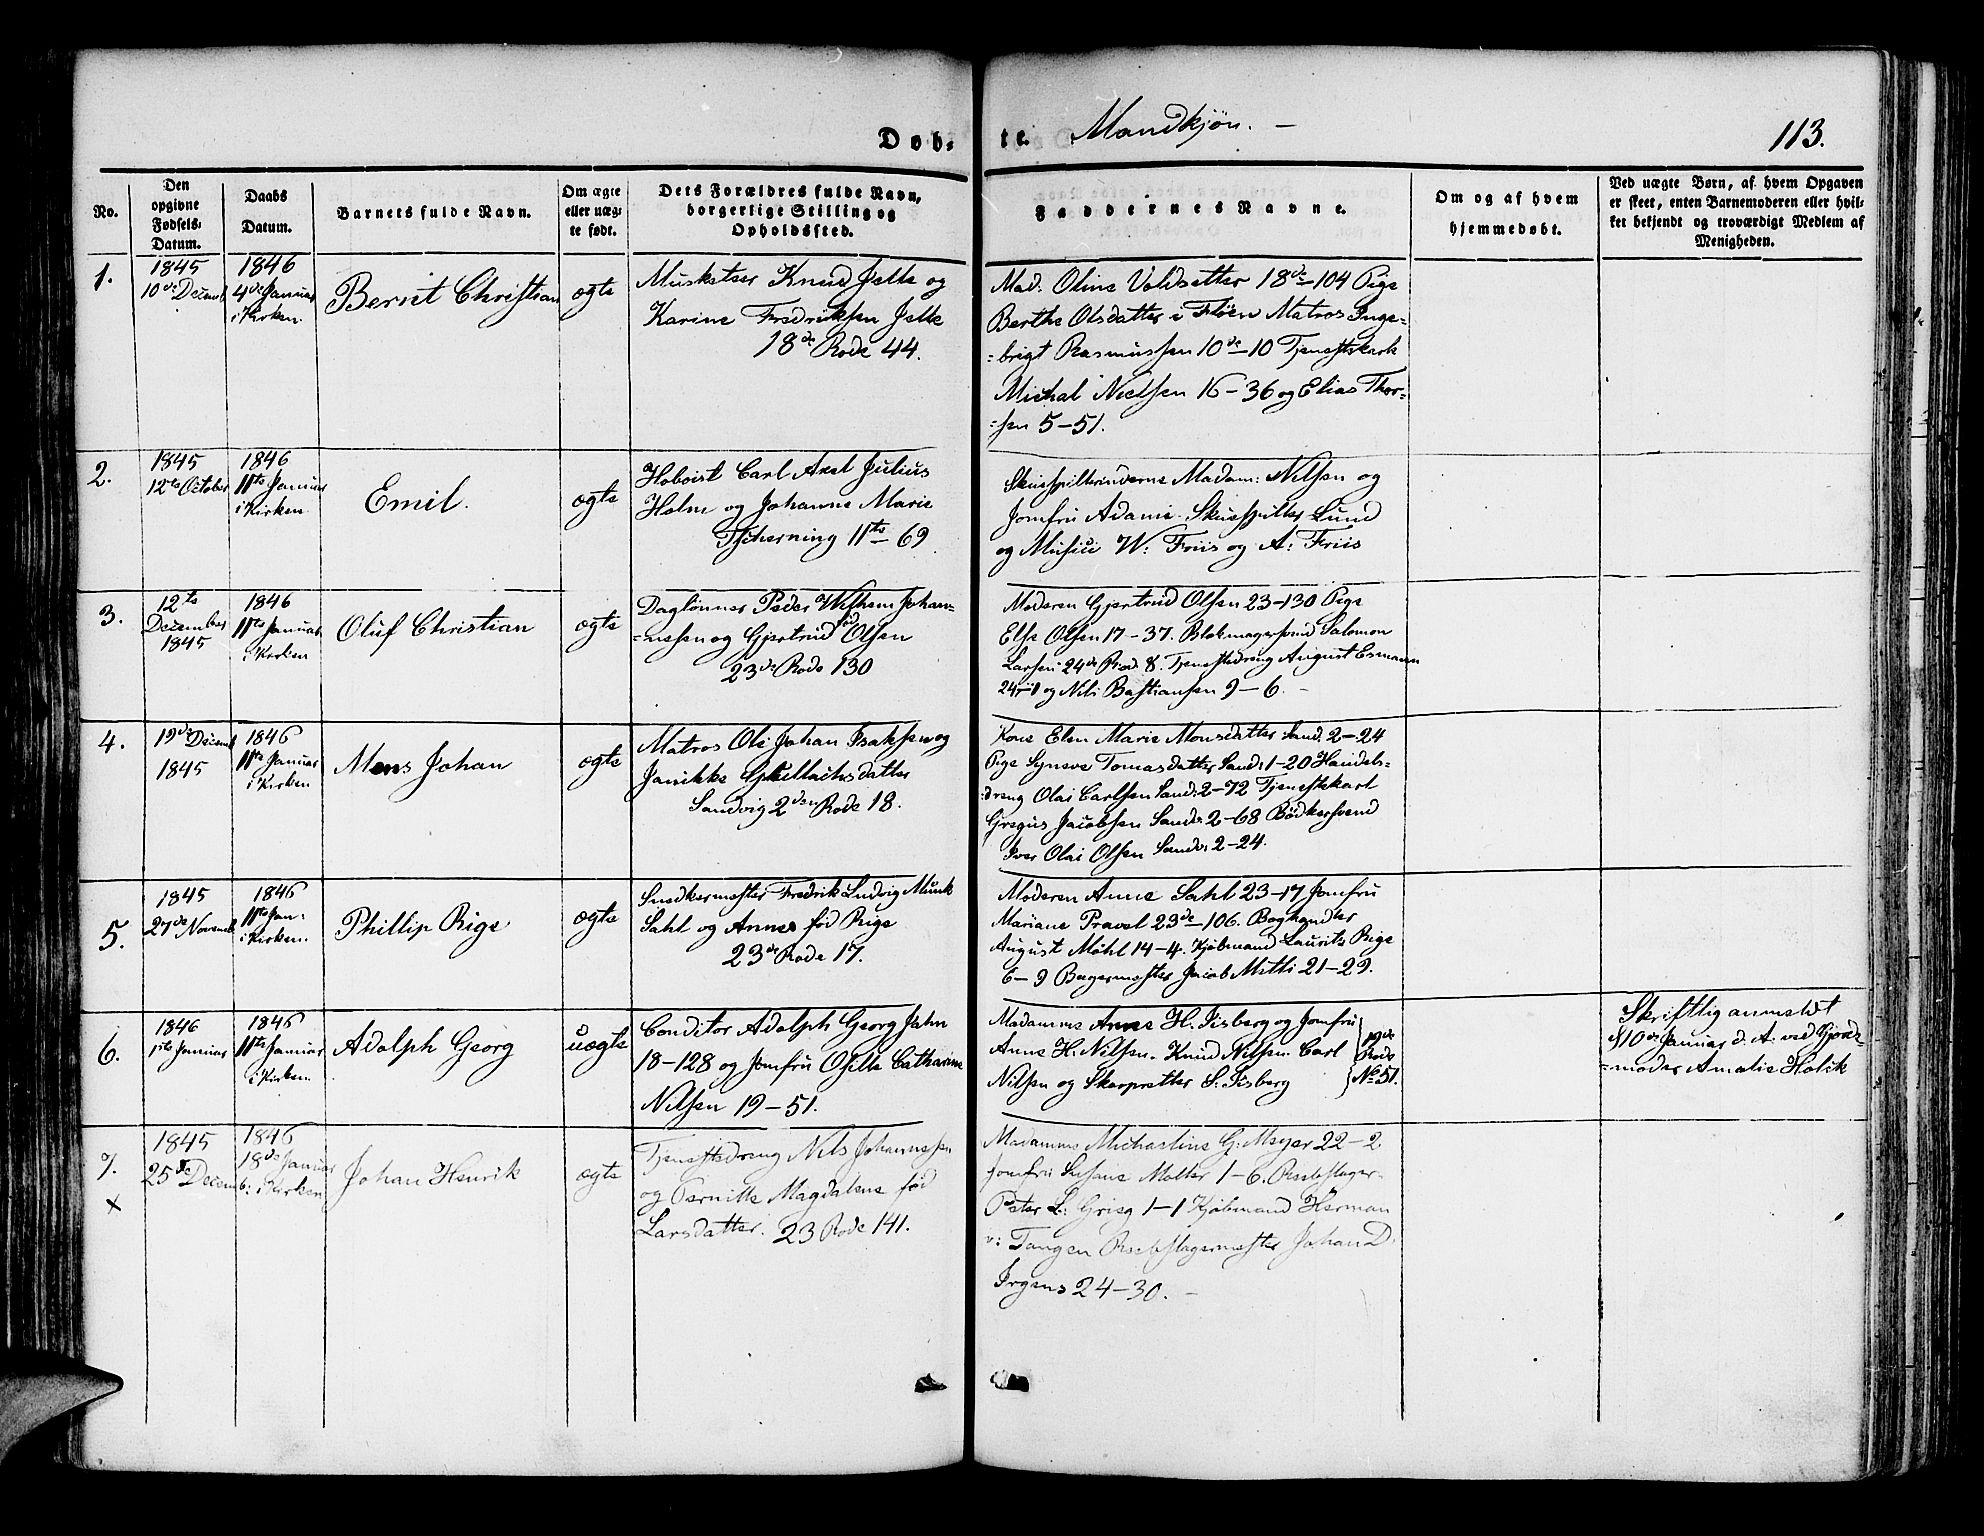 Døb-
te. Mandkjøn. —
113.
No.
Den
opgivne
Fødsels-
Datum.
Daabs
Datum.
Barnets fulde Navn.
Om ægte
eller uæg-
te født.
Dets Forældres fulde Navn,
borgerlige Stilling og
Opholdssted.
Faddernes Navne.
Om og af hvem
hjemmedøbt.
Ved uægte Børn, af hvem Opgaven
er skeet, enten Barnemoderen eller hvil-
ket bekjendt og troværdigt Medlem af
Menigheden.
1.
1845
10de Decemb
1846
4de Januar
i Kirken
Bernt Christian
ægte
Musketeer Knud Jelle og
Karine Fredriksen Jelle
18de Rode 44.
Mad. Oline Voldsetter 18de-104 Pige
Berthe Olsdatter i Fløen Matros Inge=
=brigt Rasmussen 10de-10 Tjenestekarl
Michal Nielsen 16-36 og Elias Thor=
=sen 5-51.
2.
1845
12te October
1846
11te Januar
i Kirken
Emil.
ægte
Hoboist Carl Axel Julius
Holm og Johanne Marie
Tscherning 11te-69
Skuespillerinderne Madam: Nilsen og
Jomfru Adami. Skuespiller Lund
og Musici W: Friis og A: Friis
3.
12te
December
1845
1846
11te Januar
i Kirken
Oluf Christian
ægte
Daglønner Peder Wilhem Johan=
=nesen og Gjertrud fød Olsen
23de Rode 130
Moderen Gjertrud Olsen 23-130 Pige
Else Olsen 17-37. Blokmagersvend Salomon
Larsen 24de Rod. 8. Tjenestedreng August Esmann
24-1 og Nils Bastiansen 9-6. -
4.
19de Decemb
1845
1846
11te Januar
i Kirken
Mons Johan
ægte
Matros Ole Johan Isaksen og
Janikke Gullachsdatter
Sandvig 2den Rode 18.
Kone Elen Marie Monsdatter Sand. 2-24
Pige Syneve Tomasdatter Sand: 1-20 Handels=
=dreng Olai Carlsen Sand: 2-72 Tjenestekarl
Gregus Jacobsen Sand: 2-68 Bødkersvend
Iver Olai Olsen Sand: 2-24.
5.
1845
27de Novemb
1846
11te Jan:
i Kirken
Phillip Rige
ægte
Snedkermester Fredrik Ludvig Munk
Sahl og Anne fød Rige
23de Rode 17.
Moderen Anne Sahl 23-17 Jomfru
Mariane Pravel 23de-106. Boghandler
August Møhl 14-4. Kjøbmand Laurits Rige
6-9 Bagermester Jacob Mitli 21-29.
6.
1846
1ste Januar
1846
11te Januar
i Kirken
Adolph Georg
uægte
Conditor Adolph Georg Jahn
18-128 og Jomfru Osille Catharine
Nilsen 19-51.
Madamme Anne H. Iisberg og Jomfru
Anne H. Nilsen. Knud Nilsen. Carl
Nilsen og Skarpretter S. Iisberg
19de
Rode
No 51.
Skriftlig anmeldt
10de Januar d. A. ved Gjord=
=moder Amalie Holik
7.
x
1845
25de Decemb:
1846
18de Januar
i Kirken
Johan Henrik
ægte
Tjenestedreng Nils Johannessen
og Pernille Magdalene fød
Larsdatter. 23 Rode 141.
Madamme Michaeline G. Meyer 22-2.
Jomfru Susane Molter 1-6. Rebslager
Peter L: Grieg 1-1 Kjøbmand Herman
v: Tangen Rebslagermester Johan D.
Irgens 24-30. -